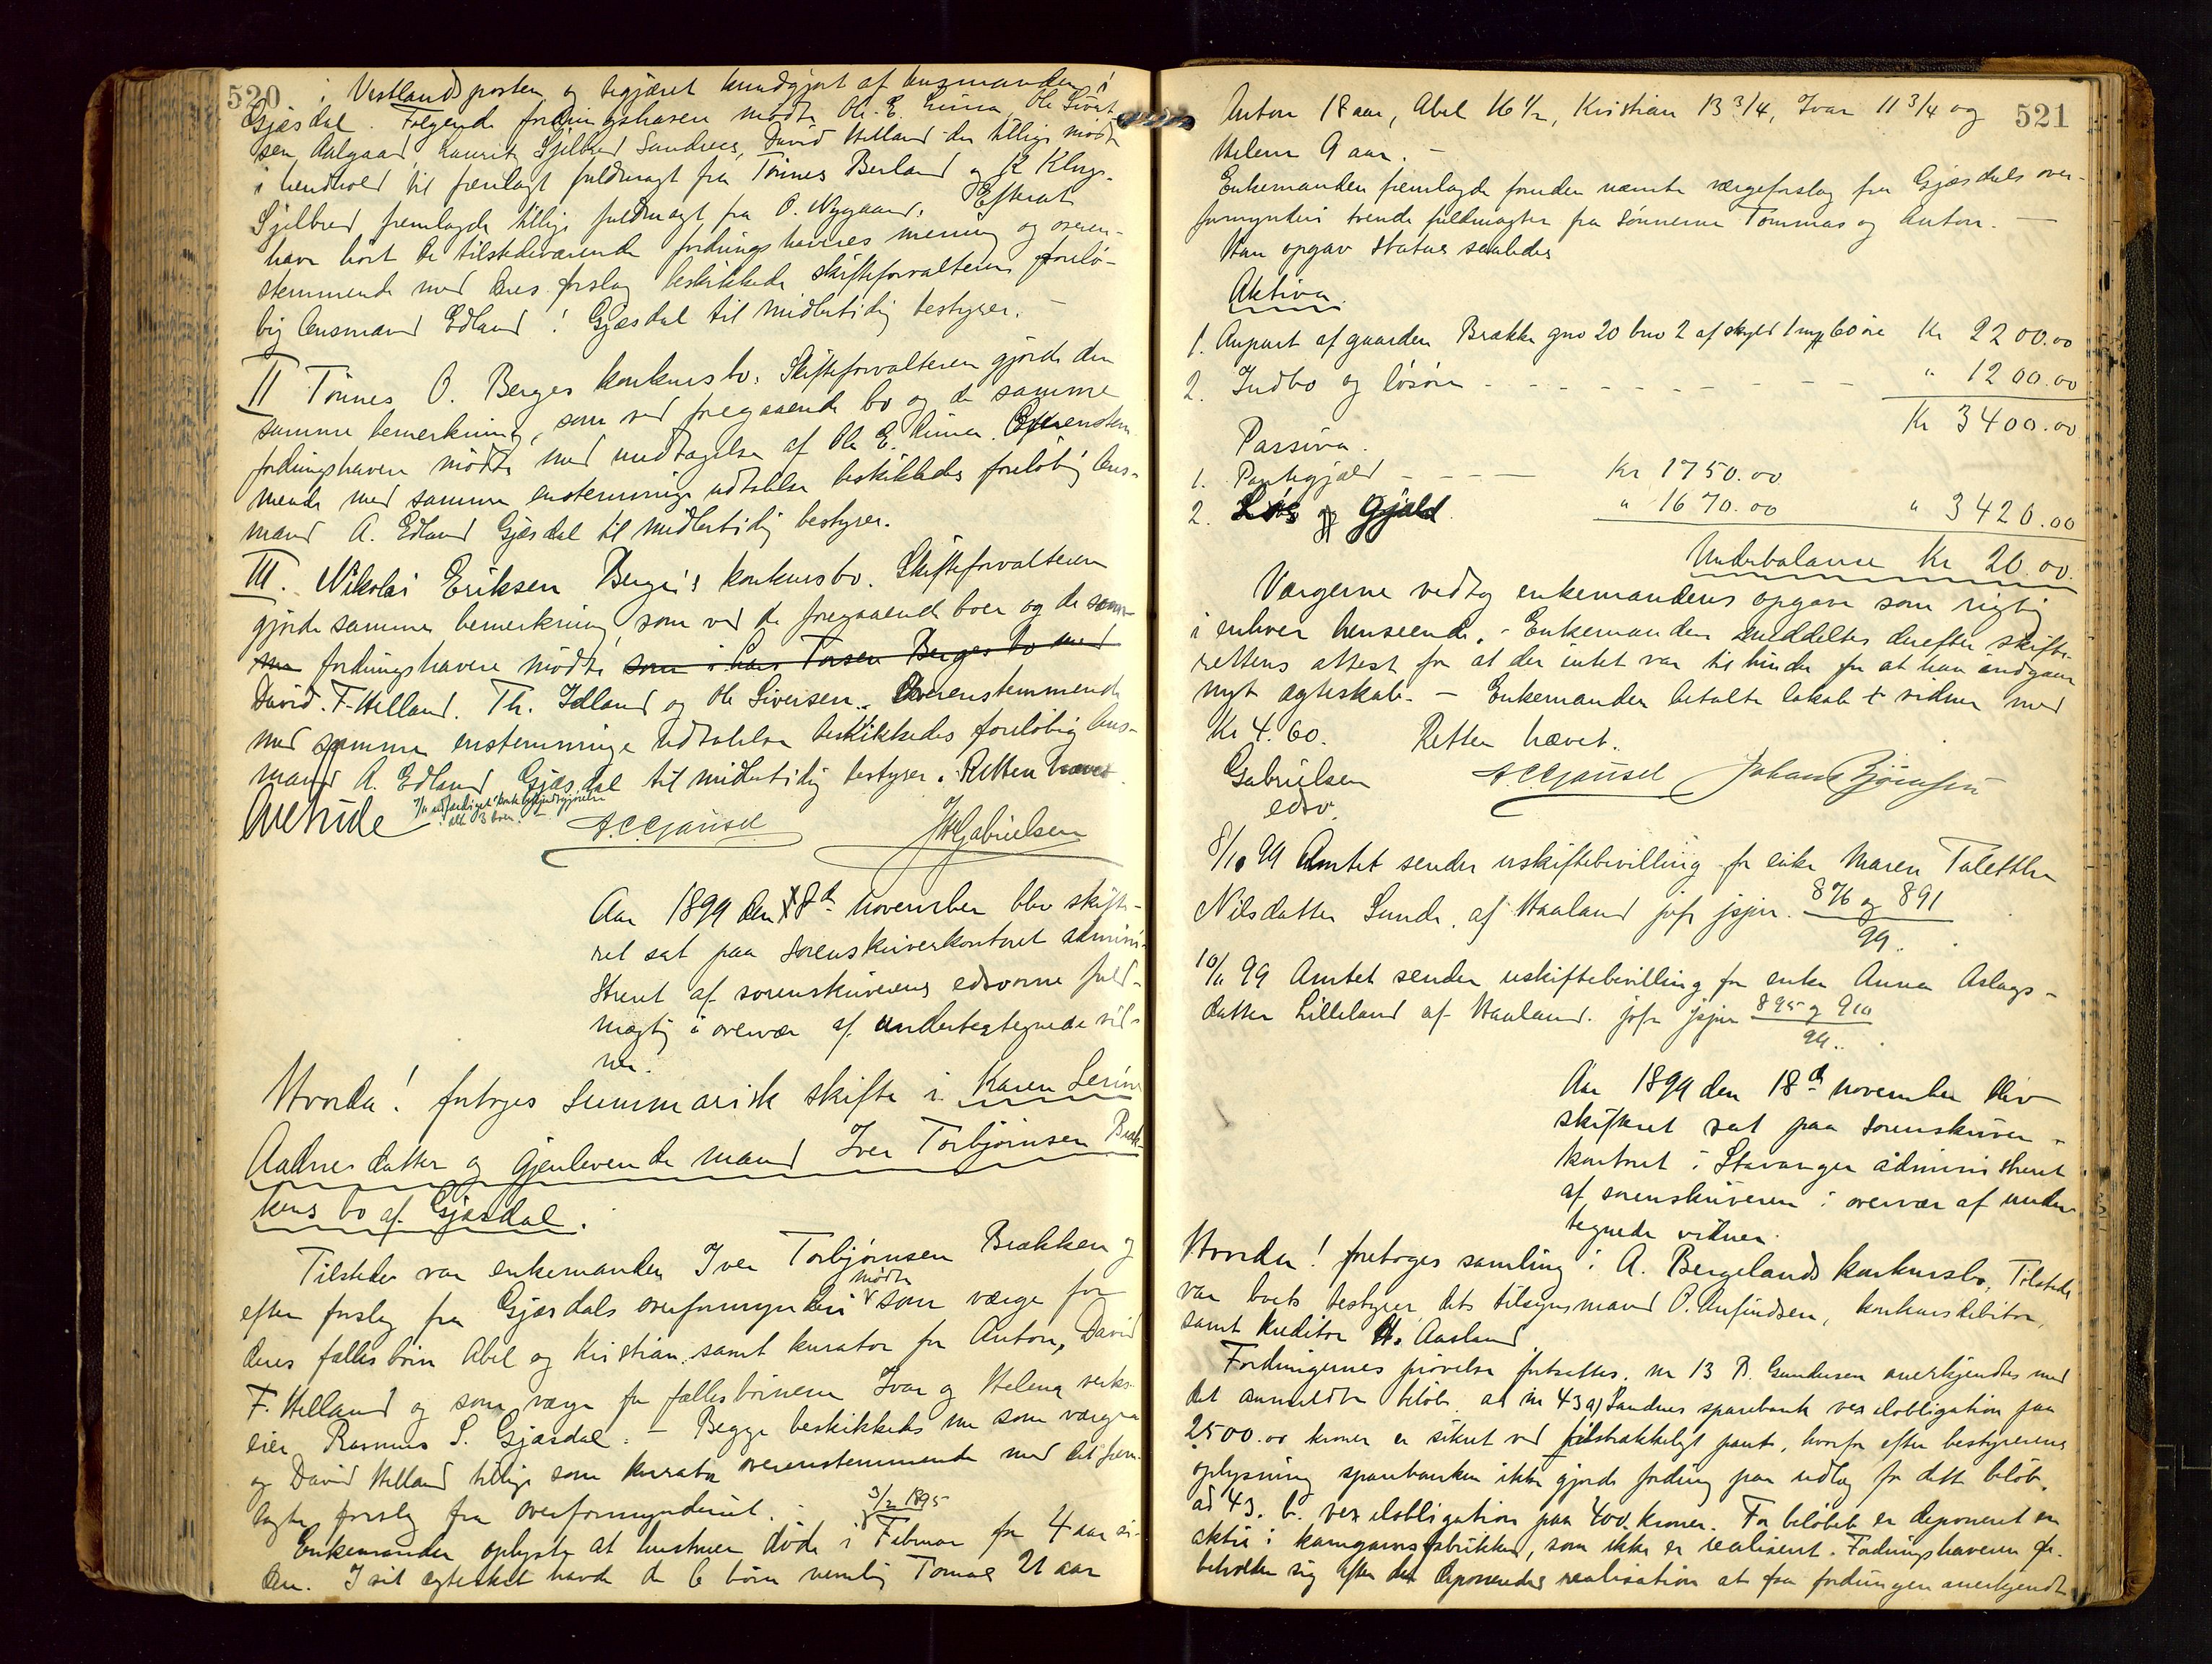 520
i Vestlandsposten og tegjæret kundgjort af lensmanden i
Gjæsdal. Følgende fordringshavere mødte Ole E. Lima, Ole Sivert-
sen Aalgaard, Lauritz Sjelbred Sandnes, David Helland der tillige mødte
i henhold til fremlagt fuldmagt fra Tønnes Berland og R Klugs.
Sjelbred fremlagde tillige fuldmagt fra O. Nygaard. Efterat
have hørt de tilstedeværende fordringshaveres mening og overen-
stemmende med deres forslag beskikkede skifteforvalteren forelø-
big lensmand Edland i Gjæsdal til midlertidig bestyrer. –
II Tønnes O. Berges konkursbo. Skifteforvalteren gjorde den
samme bemerkning, som ved foregaaende bo og de samme
fordringshavere mødte med undtagelse af Ole E. Lima. Overenstem-
mende med samme enstemmige udtalelse beskikkedes foreløbig lens-
mand A. Edland Gjæsdal til midlertidig bestyrer.
III. Nikolai Eriksen Berge's konkursbo. Skifteforvalteren
gjorde samme bemerkning som ved de foregaaende boer og de sam-
me fordringshavere mødte som i Lars Torsen Berges bo med
David F. Helland. Th. Idland og Ole Siversen. Overenstemmende
med samme enstemmige udtalelse beskikkedes foreløbig lens-
mand A. Edland Gjæsdal til midlertidig bestyrer. Retten hævet.
7/11 udfærdiget konkursbekjendtgjørelse
i alle 3 boer. –
A. C. Gjausel JHGabrielsen
Aar 1899 den 8de november blev skifte-
ret sat paa sorenskriverkontoret admini-
streret af sorenskriverens edsvorne fuld-
mægtig i overvær af undertegnede vid-
ner.
Hvorda! foretoges summarisk skifte i Karen Serine
Aadnesdatter og gjenlevende mand Iver Torbjørnsen Bræk-
kens bo af Gjæsdal.
Tilstede var enkemanden Iver Torbjørnsen Brækken og
mødte
efter forslag fra Gjæsdals overformynderi som værge for
deres fællesbørn Abel og Kristian samt kurator for Anton, David
F. Helland og som værge for fællesbørnene Ivar og Helena verks-
eier Rasmus S. Gjæsdal. – Begge beskikkedes nu som værger
og David Helland tillige som kurator overenstemmende med det frem-
lagte forslag fra overformynderiet.
3/2 1895
Enkemanden oplyste at hustruen døde i Februar for 4 aar si-
den. I sit ægteskab havde de 6 børn nemlig Tomas 21 aar
521
Anton 18 aar, Abel 16 1/2, Kristian 13 3/4, Ivar 11 3/4 og
Helene 9 aar. –
Enkemanden fremlagde foruden nævnte værgeforslag fra Gjæsdals over-
formynderi trende fuldmagter fra sønnerne Tommas og Anton. –
Han opgav status saaledes
Aktiva.
1. Anpart af gaarden Brække gno 20 bno 2 af skyld 1 mk 60 øre Kr 2200.00
2. Indbo og løsøre - - - - - - - - - " 1200.00
Kr 3400.00
Passiva.
1. Pantegjæld - - - - Kr 1750.00
2. Løs gjæld. " 1670.00 " 3420.00
Underbalance Kr 20.00.
Værgerne vedtog enkemandens opgave som rigtig
i enhver henseende. – Enkemanden meddeltes derefter skifte-
rettens attest for at der intet var til hinder for at han indgaar
nyt ægteskab. – Enkemanden betalte lokale & vidner med
Kr 4.60. Retten hævet.
Gabrielsen A. C. Gjausel Johan Bjørnsen
edsv.
8/10 99 Amtet sender uskiftebevilling for enke Maren Talette
Nilsdatter Lunde af Haaland jofr jspr. 876 og 891
99.
10/11 99 Amtet sender uskiftebevilling for enke Anna Aslags-
datter Lilleland af Haaland. jofr jspr 895 og 910
99.
Aar 1899 den 18de november blev
skifteret sat paa sorenskriver-
kontoret i Stavanger administreret
af sorenskriveren i overvær af under-
tegnede vidner.
Hvorda! foretoges samling i A. Bergelands konkursbo. Tilstede
var boets bestyrer dets tilsynsmand O. Anfindsen, konkursdebitor,
samt kreditor H. Aasland.
Fordringernes prøvelse fortsattes. no 13 P. Gundersen anerkjendtes med
det anmeldte beløb. ad no 43 a) Sandnes sparebank vexelobligation paa
2500.00 kroner er sikret ved tilstrækkeligt pant, hvorfor efter bestyrerens
oplysning sparebanken ikke gjorde fordring paa udlæg for dette beløb.
ad 43. b. vexelobligation paa 400 kroner. For beløbet er deponeret en
aktie i kamgarnsfabrikken, som ikke er realiseret. Fordringshaveren for-
beholder sig efter det deponeredes realisation at faa fordringen anerkjendt